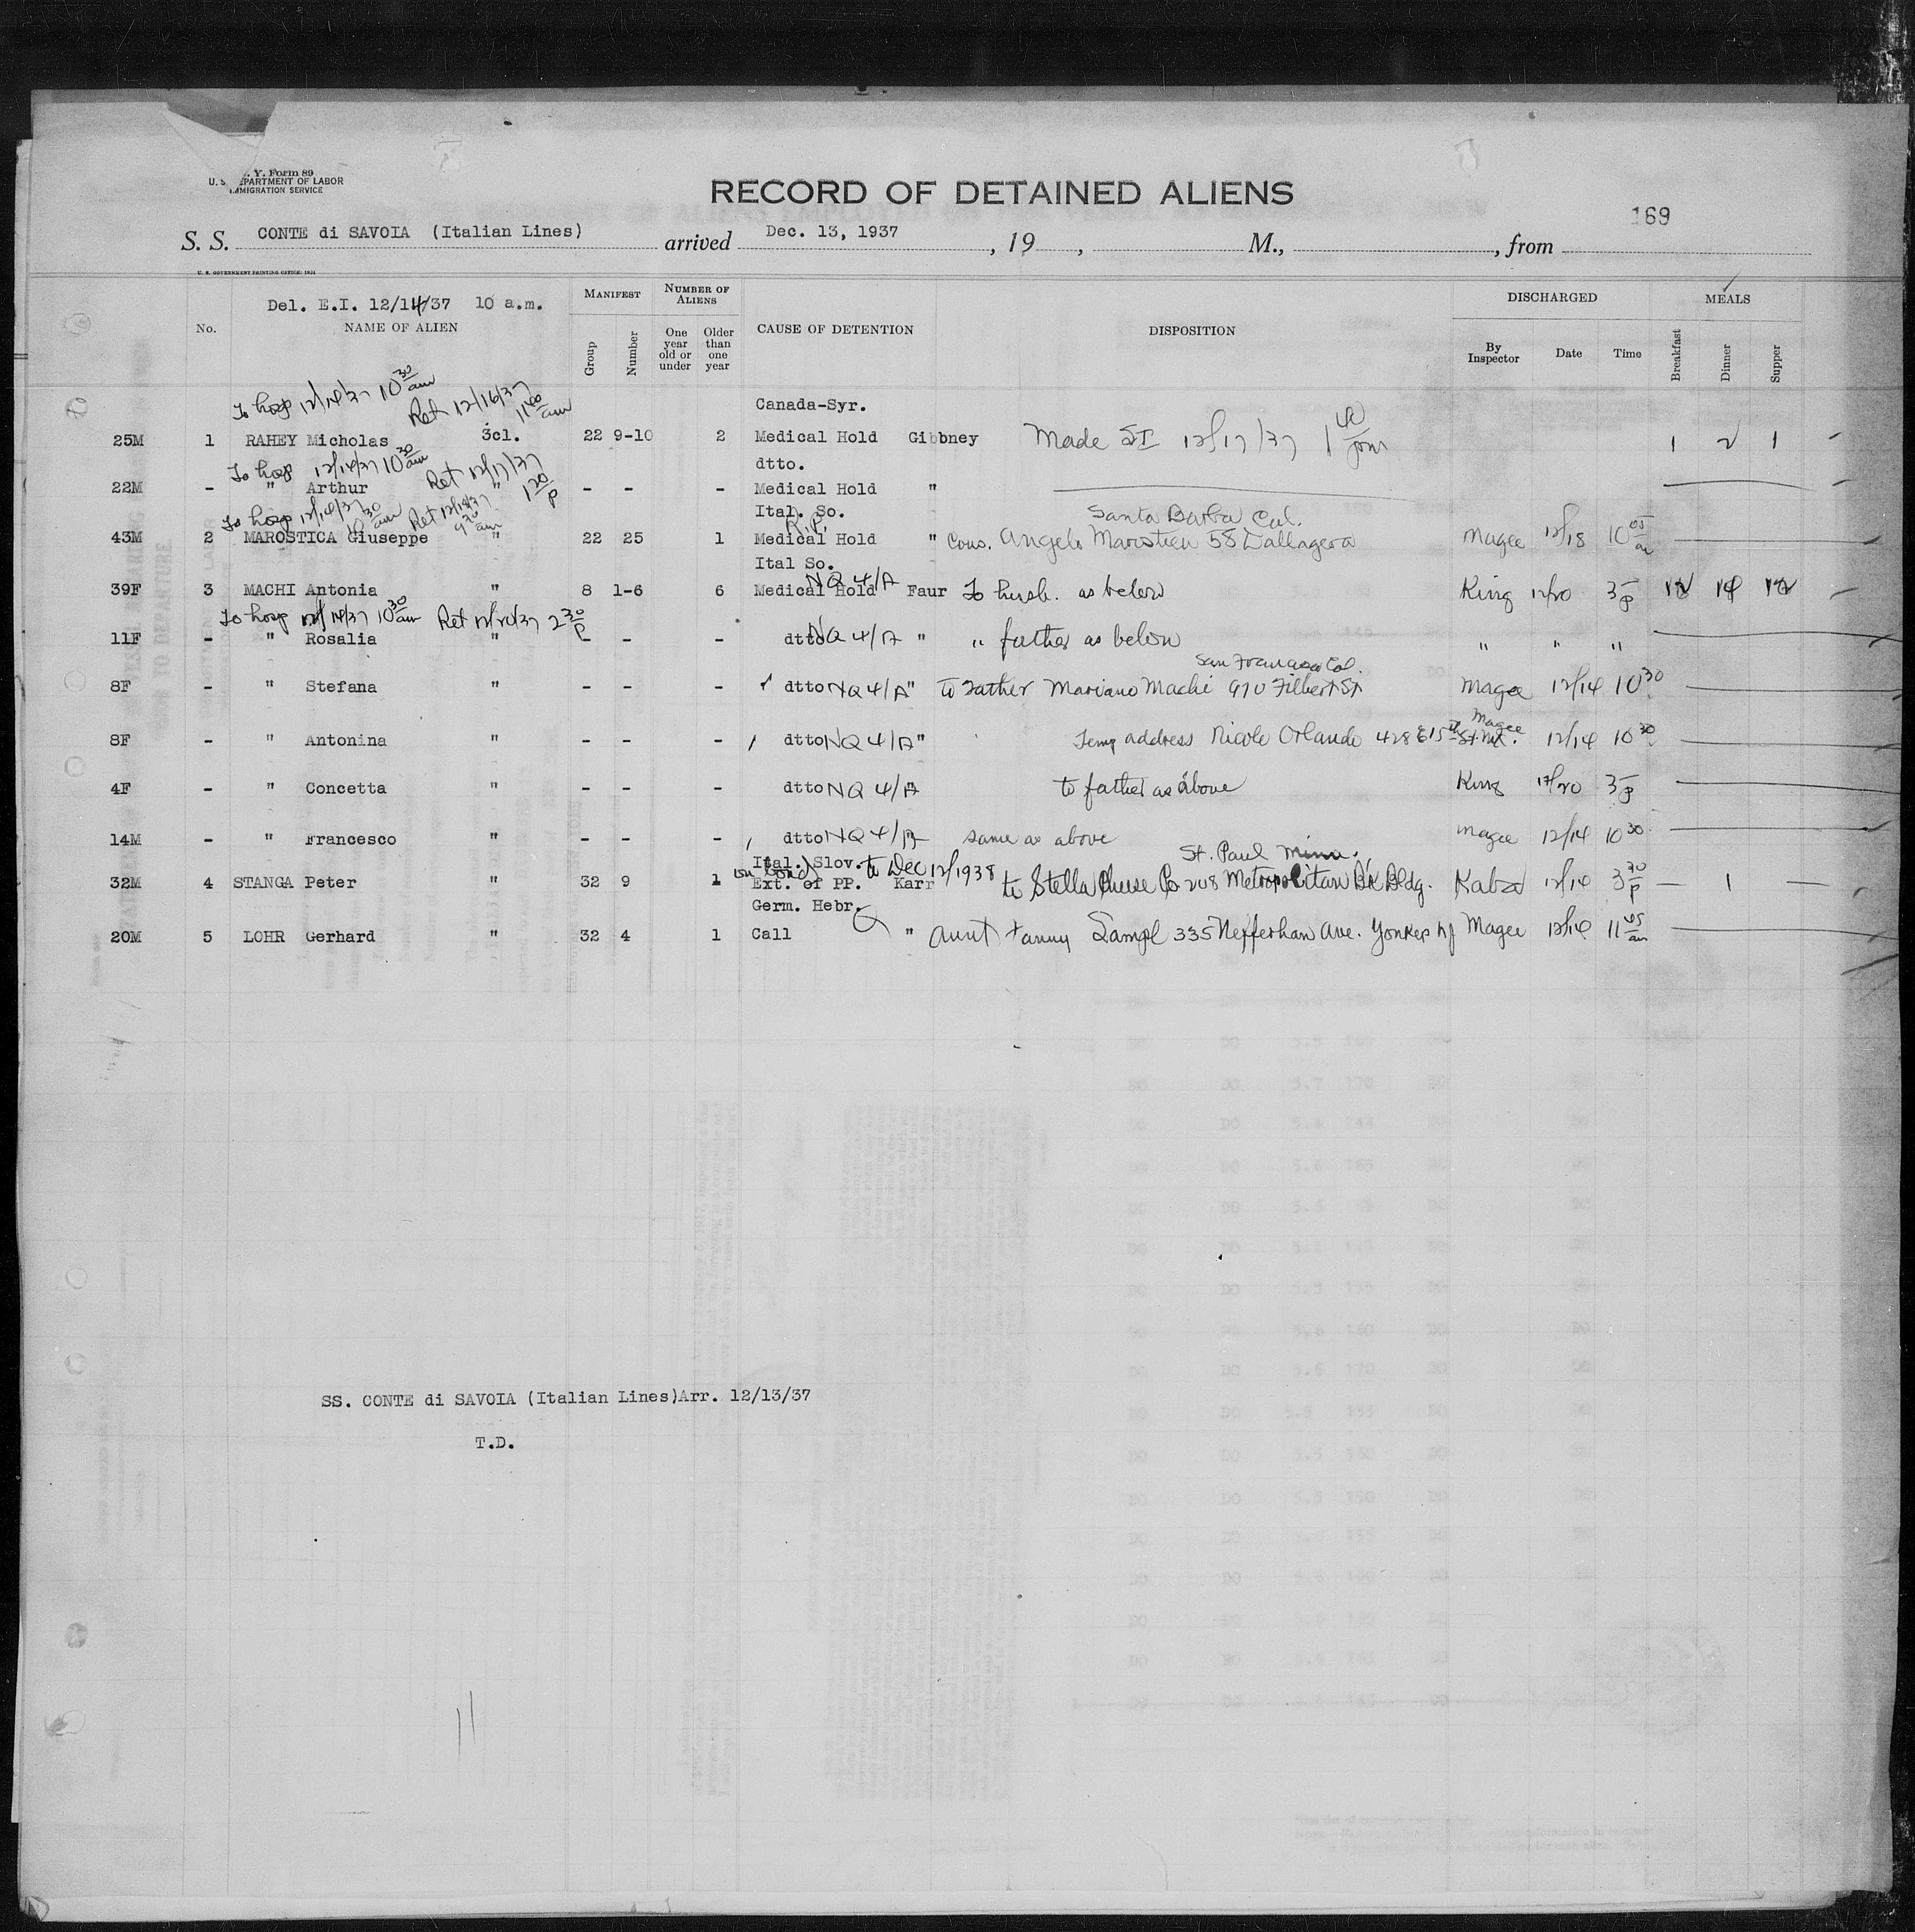 Y. Form 89
U. S. DEPARTMENT OF LABOR
IMMIGRATION SERVICE
RECORD OF DETAINED ALIENS
169
S. S. CONTE di SAVOIA (Italian Lines) arrived Dec. 13, 1937, 19 , M., , from
U. S. GOVERNMENT PRINTING OFFICE: 1934
Del. E.I. 12/14/37 10 a.m.
No. NAME OF ALIEN MANIFEST Group Number NUMBER OF ALIENS One year old or under Older than one year CAUSE OF DETENTION DISPOSITION DISCHARGED By Inspector Date Time MEALS Breakfast Dinner Supper
To hosp 12/14/37 10 30 am Ret 12/16/37 11 00 am Canada-Syr.
25M 1 RAHEY Micholas 3cl. 22 9-10 2 Medical Hold Gibbney Made SI 12/17/37 1 40 pm 1 2 1 -
To hosp 12/14/37 10 30 am Ret 12/17/37 1 20 p dtto.
22M - " Arthur " - - - Medical Hold "
To hosp 12/14/37 10 30 am Ret 12/18/37 9 30 am Ital. So. R.P. Santa Barba, Cal.
43M 2 MAROSTICA Giuseppe " 22 25 1 Medical Hold " Cous. Angelo 58 Magee 12/18 10 05 am
Ital So. NQ 4/A
39F 3 MACHI Antonia " 8 1-6 6 Medical Hold Faur To husb. as below King 12/20 3 p
To hosp 12/14/37 10 30 am Ret 12/20/37 2 30 p
11F - " Rosalia " - - - dtto NQ 4/A " " father as below " " "
San Francisco Cal.
8F - " Stefana " - - - dtto NQ 4/A " To Father Mariano Machi 970 Filbert St Magee 12/14 10 30
8F - " Antonina " - - - dtto NQ 4/A " Temp address Nicolo Orlando 428 E 15th St. Magee 12/14 10 30
4F - " Concetta " - - - dtto NQ 4/A " to father as above King 12/20 3 p
14M - " Francesco " - - - dtto NQ 4/A same as above Magee 12/14 10 30
Ital. Slov. on bond to Dec 12/1938 St. Paul Minn.
32M 4 STANGA Peter " 32 9 1 Ext. of PP. Karr to Stella Cheese Co 208 Metropolitan Bk Bldg. 12/14 3 30 p - 1 -
Germ. Hebr.
20M 5 LOHR Gerhard " 32 4 1 Call " Aunt Fanny 335 Nepperhan Ave. Yonkers NY Magee 12/14 11 05 am
SS. CONTE di SAVOIA (Italian Lines)Arr. 12/13/37
T.D.
11